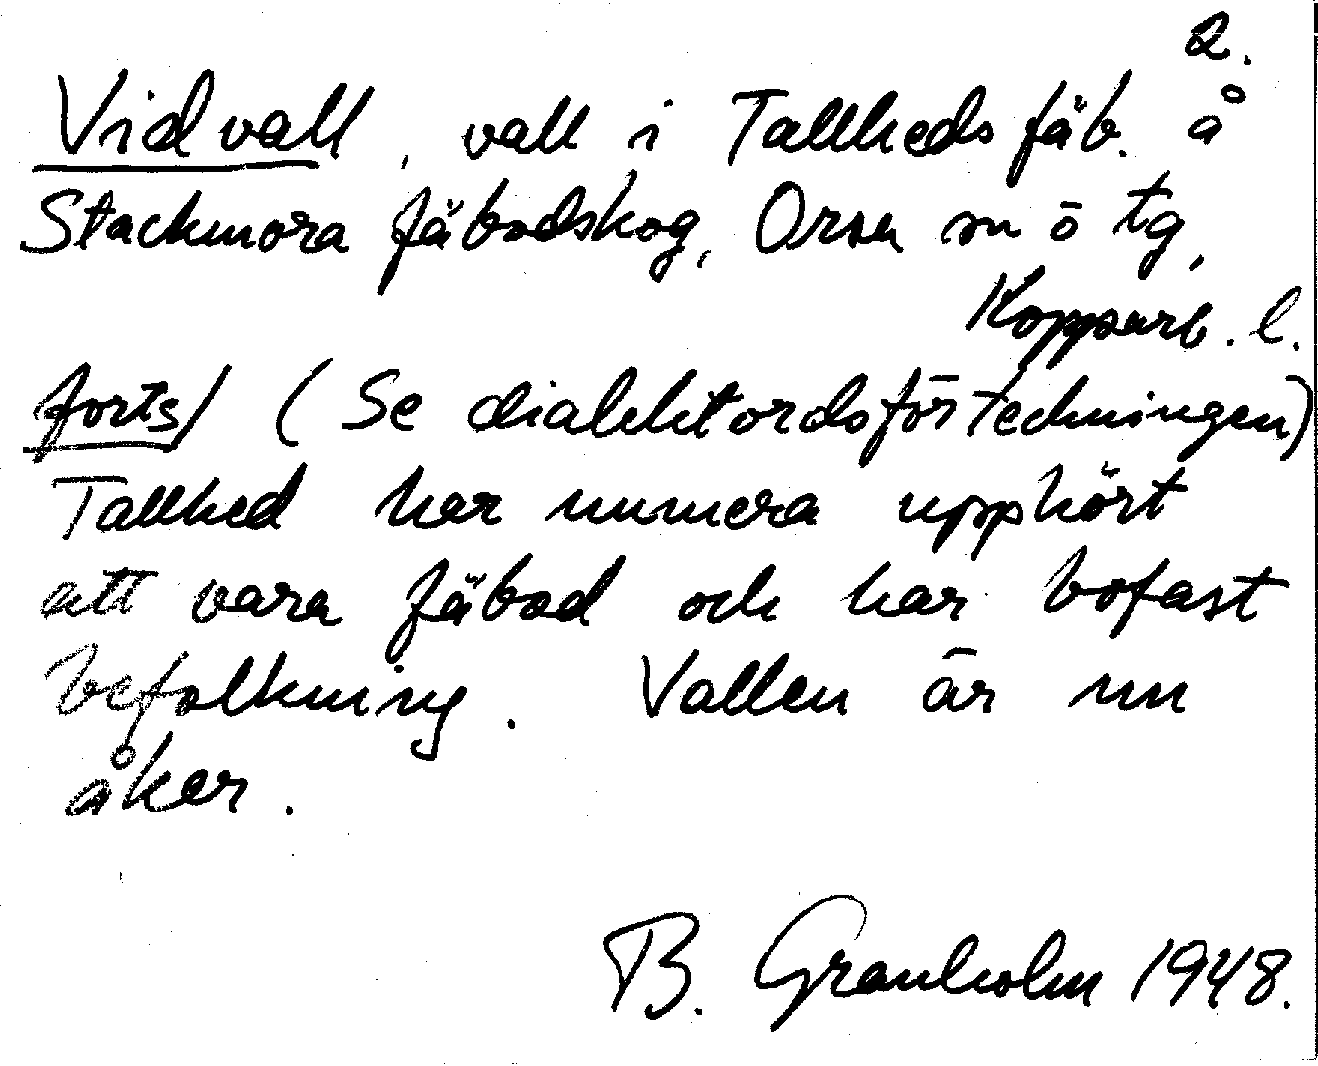 2.
Vidvall, vall i Tallheds fäb. å
Stackmora fäbodskog, Orsa sn ö tg,
Kopparb. l.
forts/ (Se dialektordsförteckningen)
Tallhed har numera upphört
att vara fäbod och har bofast
befolkning. Vallen är nu
åker.
B. Granholm 1948.